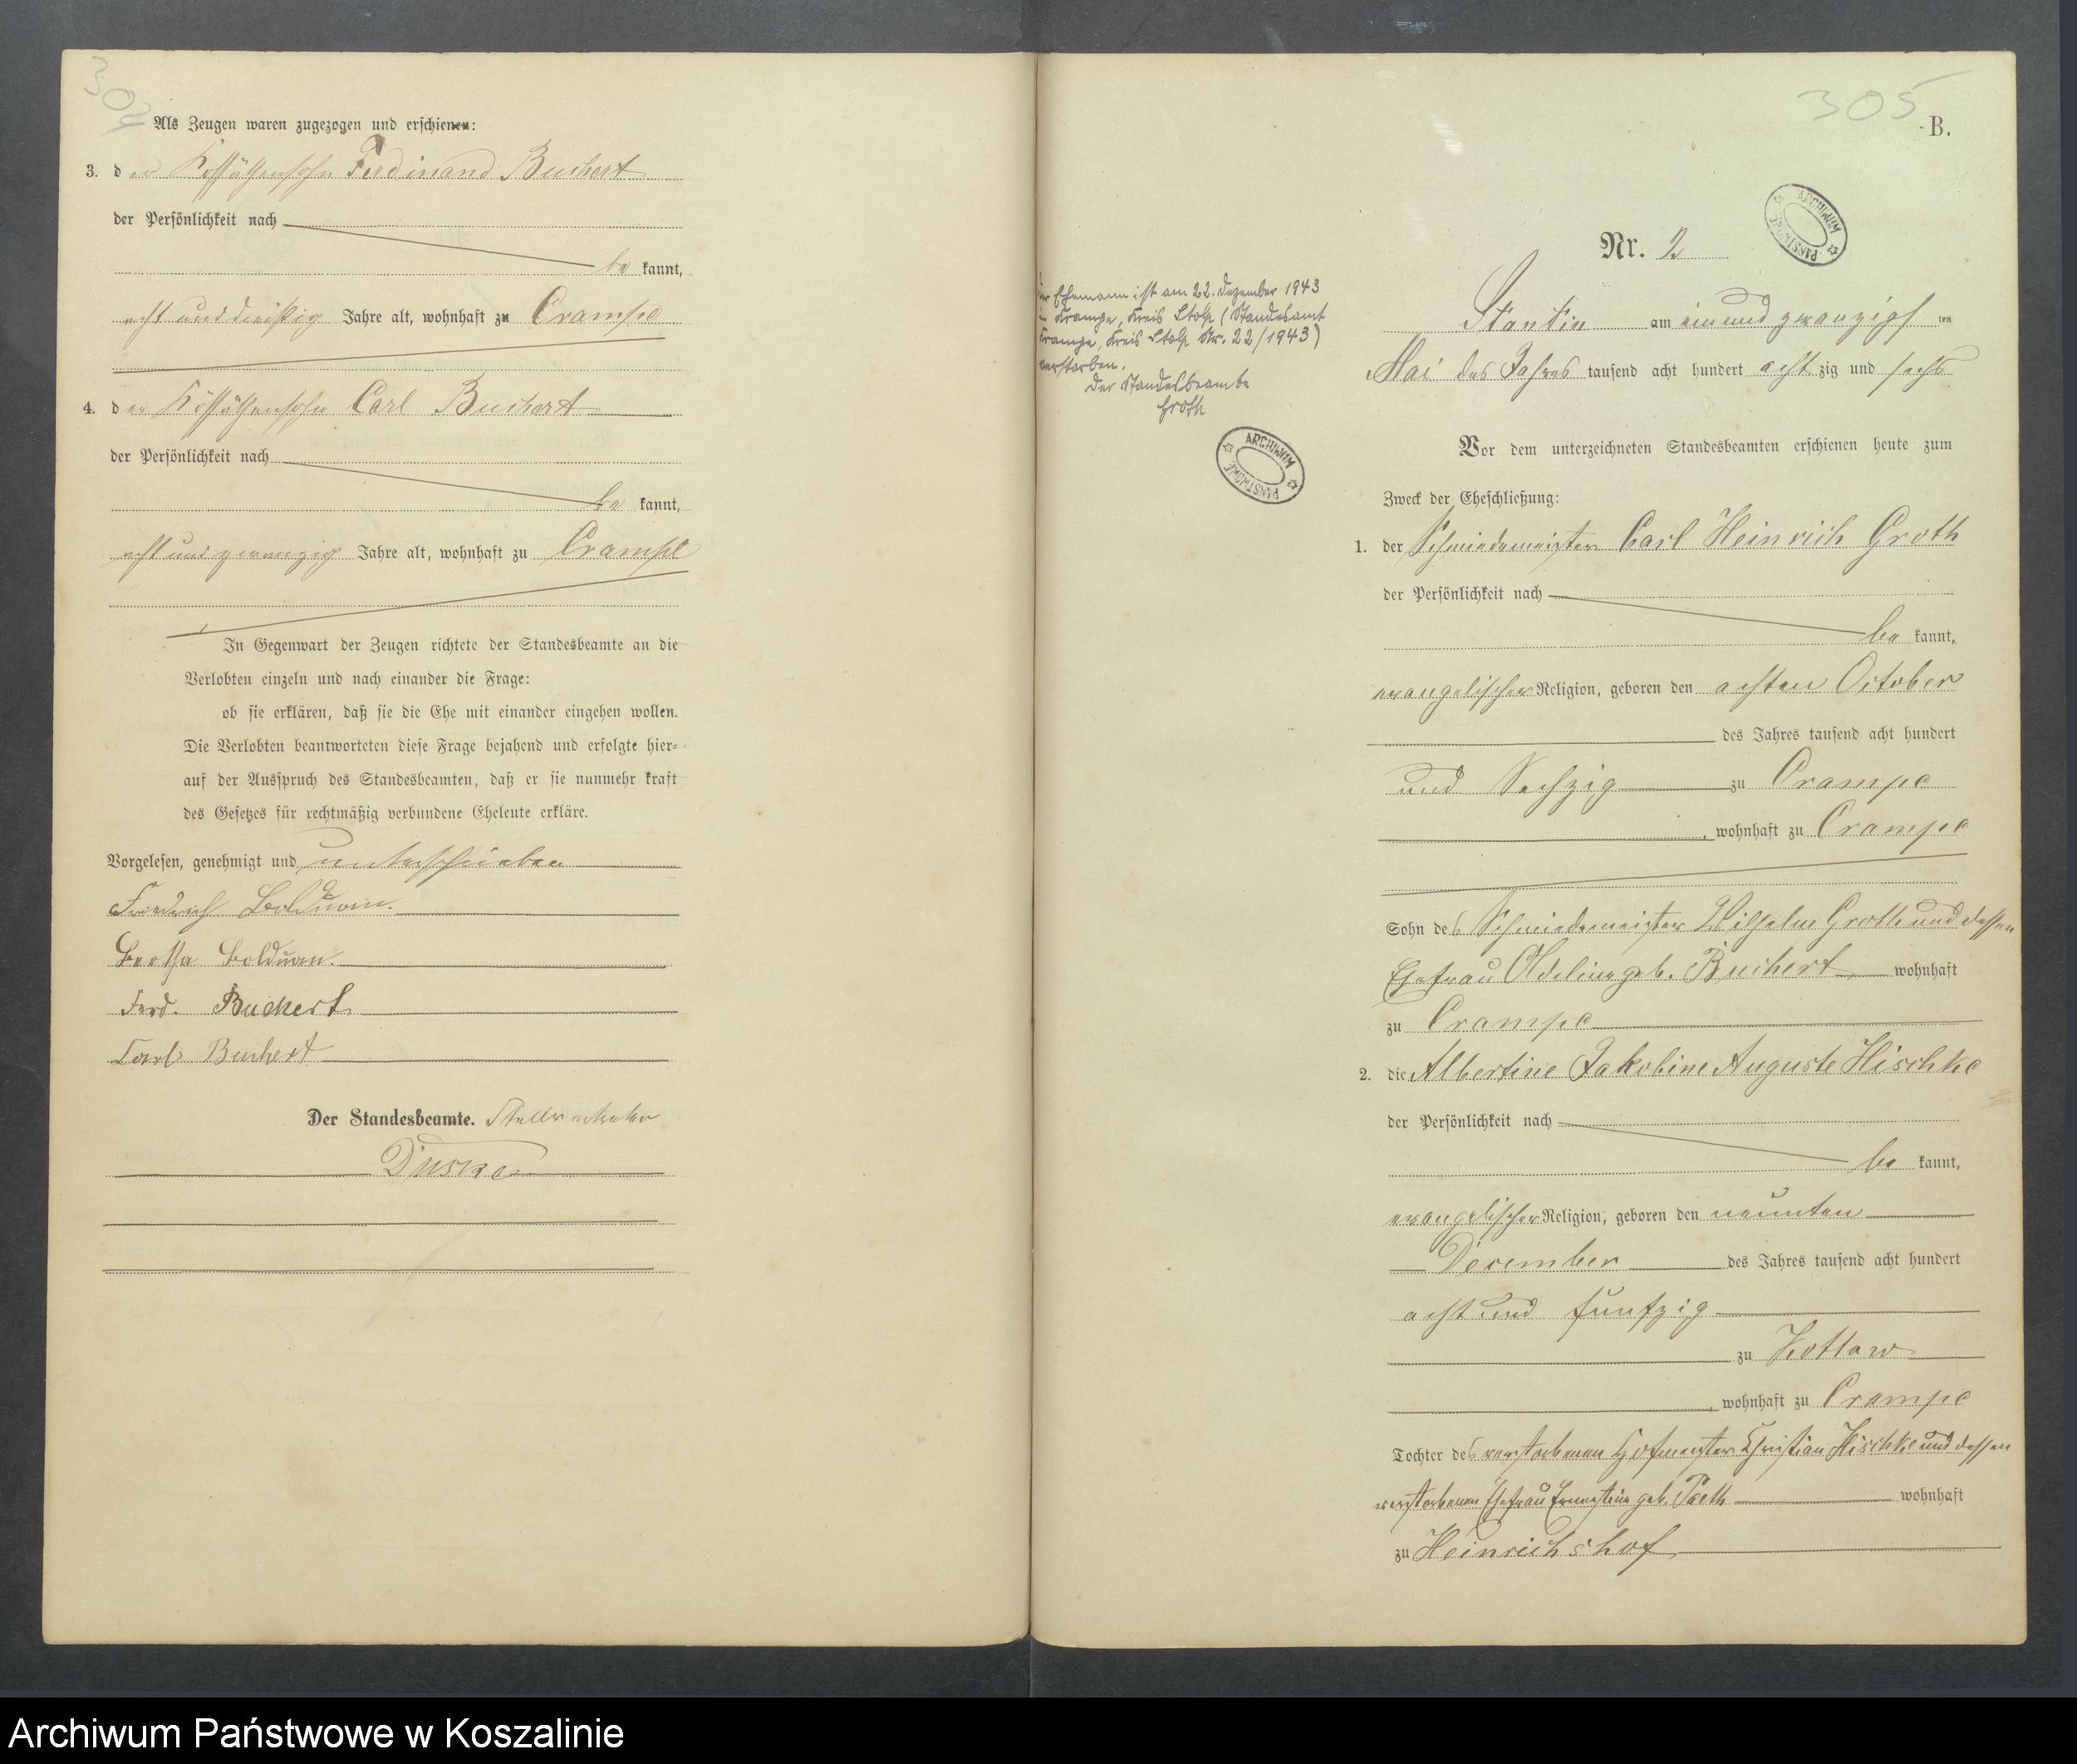 Als Zeugen waren zugezogen und erschienen:
3. der Kossäthensohn Ferdinand Buchert
der Persönlichkeit nach
be kannt,
acht und dreißig Jahre alt, wohnhaft zu Crampe
4. der Kossäthensohn Carl Buchert
der Persönlichkeit nach
be kannt,
acht und zwanzig Jahre alt, wohnhaft zu Crampe
In Gegenwart der Zeugen richtete der Standesbeamte an die
Verlobten einzeln und nach einander die Frage:
ob sie erklären, daß sie die Ehe mit einander eingehen wollen.
Die Verlobten beantworteten diese Frage bejahend und erfolgte hier-
auf der Ausspruch des Standesbeamten, daß er sie nunmehr kraft
des Gesetzes für rechtmäßig verbundene Eheleute erkläre.
Vorgelesen, genehmigt und unterschrieben
Friedrich Bolduan.
Bertha Bolduan.
Ferd. Buchert
Carl Buchert
Der Standesbeamte. Stellvertreter
305
B.
Nr. 2
ARCHIWUM PAŃSTWOWE
Stantin am ein und zwanzigs ten
Mai des Jahres tausend acht hundert acht zig und sechs
Der Ehemann ist am 22. Dezember 1943
in Krampe, Kreis Stolp (Standesamt
Krampe, Kreis Stolp Nr. 22/1943)
verstorben.
Der Standesbeamte
Groth
ARCHIWUM PAŃSTWOWE
Vor dem unterzeichneten Standesbeamten erschienen heute zum
Zweck der Eheschließung:
1. der Schmiedemeister Carl Heinrich Groth
der Persönlichkeit nach
be kannt,
evangelischer Religion, geboren den achten October
des Jahres tausend acht hundert
und Sechzig zu Crampe
, wohnhaft zu Crampe
Sohn des Schmiedemeister Wilhelm Groth und dessen
Ehefrau Adeline geb. Buchert wohnhaft
zu Crampe
2. die Albertine Jakobine Auguste Hischke
der Persönlichkeit nach
be kannt,
evangelischer Religion, geboren den neunten
December des Jahres tausend acht hundert
acht und funfzig
zu Kottow
, wohnhaft zu Crampe
Tochter des verstorbenen Hofmeister Christian Hischke und dessen
verstorbenen Ehefrau Ernestine geb. Paeth wohnhaft
zu Heinrichshof
Archiwum Państwowe w Koszalinie